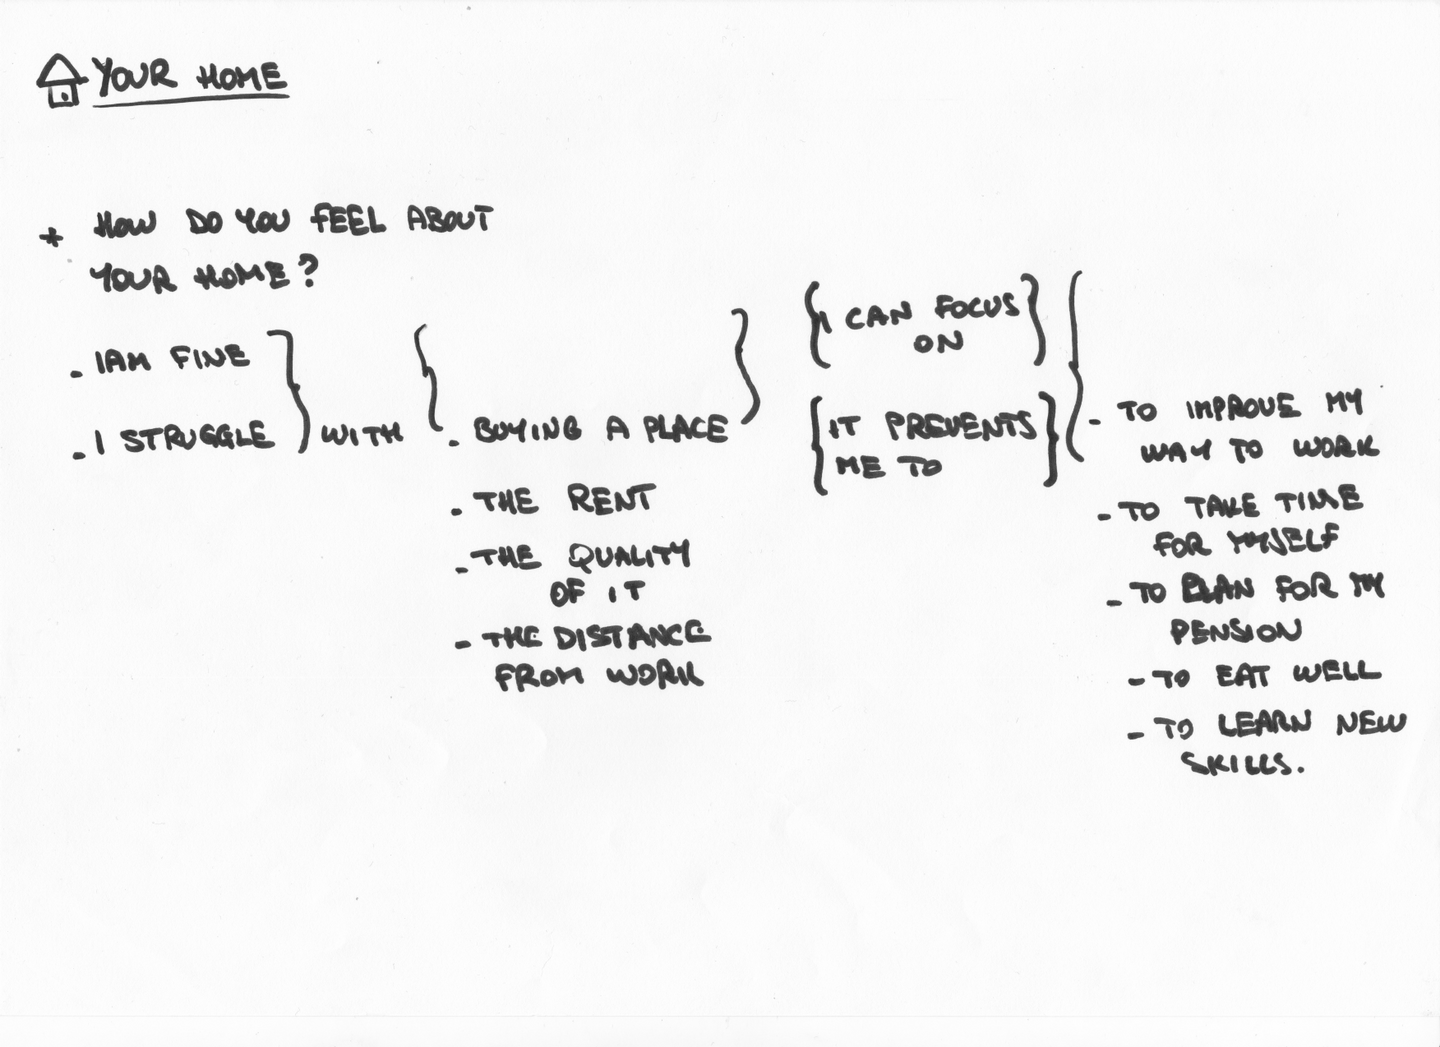 YOUR HOME
* HOW DO YOU FEEL ABOUT
YOUR HOME?
- I AM FINE
- I STRUGGLE
WITH
- BUYING A PLACE
- THE RENT
- THE QUALITY
OF IT
- THE DISTANCE
FROM WORK
I CAN FOCUS
ON
IT PREVENTS
ME TO
- TO IMPROVE MY
WAY TO WORK
- TO TAKE TIME
FOR MYSELF
- TO PLAN FOR MY
PENSION
- TO EAT WELL
- TO LEARN NEW
SKILLS.